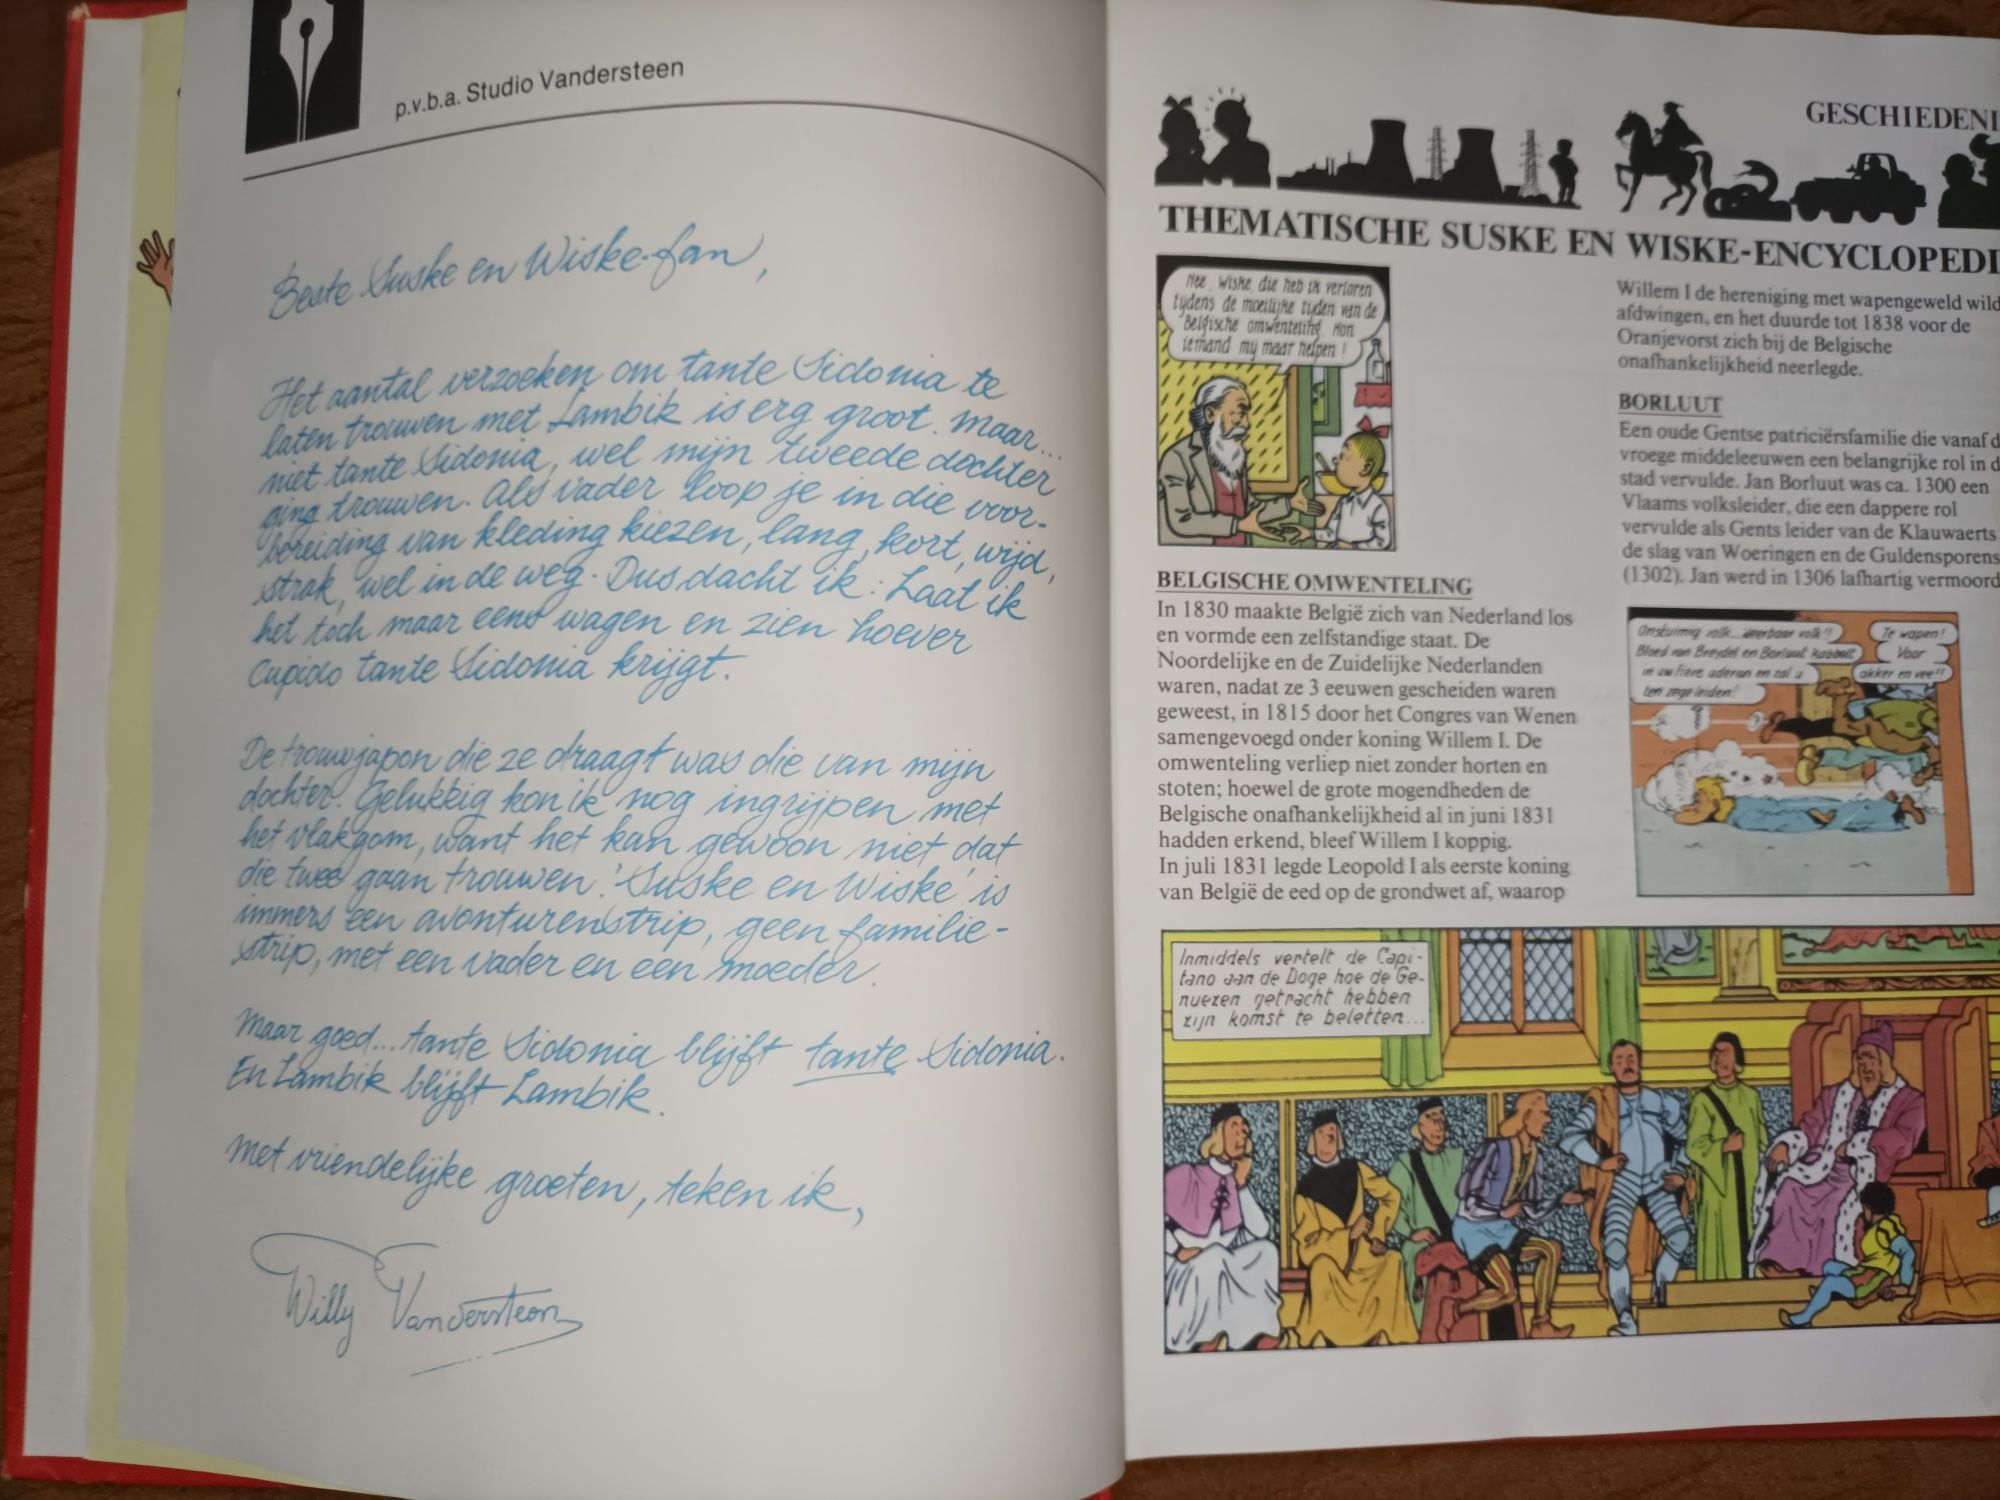 p.v.b.a. Studio Vandersteen
Beste Suske en Wiske-fan,
Het aantal verzoeken om tante Sidonia te
laten trouwen met Lambik is erg groot. Maar...
niet tante Sidonia, wel mijn tweede dochter
ging trouwen. Als vader loop je in die voor-
bereiding van kleding kiezen, lang, kort, wijd,
strak, wel in de weg. Dus dacht ik: Laat ik
het toch maar eens wagen en zien hoever
Cupido tante Sidonia krijgt.
De trouwjapon die ze draagt was die van mijn
dochter. Gelukkig kon ik nog ingrijpen met
het vlakgom, want het kan gewoon niet dat
die twee gaan trouwen. 'Suske en Wiske' is
immers een avonturenstrip, geen familie-
strip, met een vader en een moeder.
Maar goed... tante Sidonia blijft tante Sidonia.
En Lambik blijft Lambik.
Met vriendelijke groeten, teken ik,
Willy Vandersteen
GESCHIEDENI
THEMATISCHE SUSKE EN WISKE-ENCYCLOPEDI
Nee, Wiske, die heb ik verloren
tijdens de moeilijke tijden van de
Belgische omwenteling. Kon
iemand mij maar helpen!
BELGISCHE OMWENTELING
In 1830 maakte België zich van Nederland los
en vormde een zelfstandige staat. De
Noordelijke en de Zuidelijke Nederlanden
waren, nadat ze 3 eeuwen gescheiden waren
geweest, in 1815 door het Congres van Wenen
samengevoegd onder koning Willem I. De
omwenteling verliep niet zonder horten en
stoten; hoewel de grote mogendheden de
Belgische onafhankelijkheid al in juni 1831
hadden erkend, bleef Willem I koppig.
In juli 1831 legde Leopold I als eerste koning
van België de eed op de grondwet af, waarop
Willem I de hereniging met wapengeweld wild
afdwingen, en het duurde tot 1838 voor de
Oranjevorst zich bij de Belgische
onafhankelijkheid neerlegde.
BORLUUT
Een oude Gentse patriciërsfamilie die vanaf d
vroege middeleeuwen een belangrijke rol in d
stad vervulde. Jan Borluut was ca. 1300 een
Vlaams volksleider, die een dappere rol
vervulde als Gents leider van de Klauwaerts
de slag van Woeringen en de Guldensporens
(1302). Jan werd in 1306 lafhartig vermoord
Onstuimig volk... weerbaar volk!!
Bloed van Breydel en Borluut kabbelt
in uw fiere aderen en zal u
ten zege leiden!
Te wapen!
Voor
akker en vee!!
Inmiddels vertelt de Capi-
tano aan de Doge hoe de Ge-
nuezen getracht hebben
zijn komst te beletten...